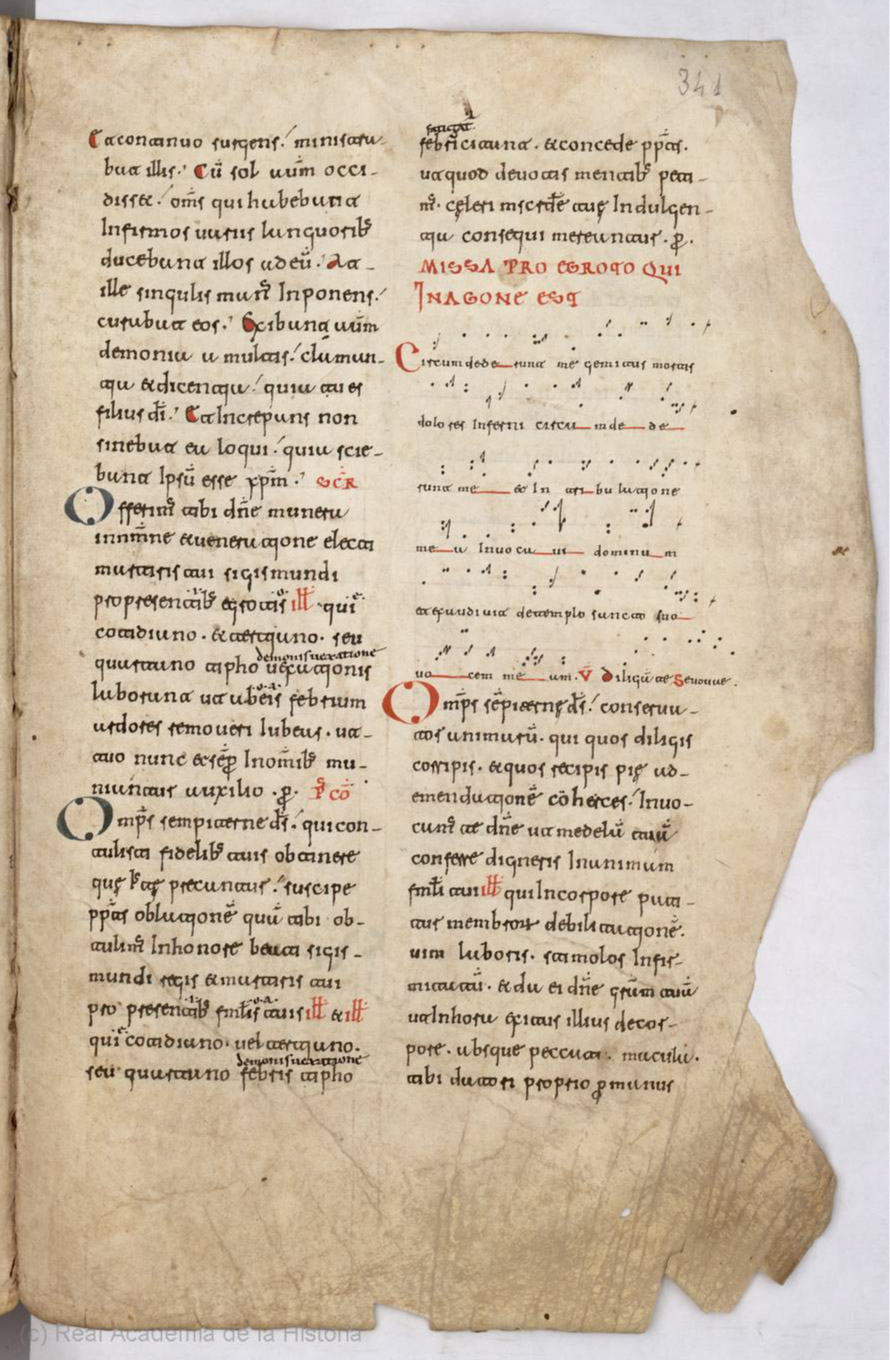 341
Et continuo surgens. ministra-
bat illis. Cū sol autm̄ occi-
disset. om̄s qui habebant
Infirmos uariis languorib;
ducebant illos ad eū. At
ille singulis man; Inponens.
curabat eos. Exibant autm̄
demonia a multis. clāman-
tia & dicentia. quia tu es
filius dī. Et Increpans non
sinebat ea loqui. quia scie-
bant Ipsū esse xp̄m. SCR
Offerim; tibi dn̄e munera
In nmn̄e & ueneratione electi
martiris tui sigismundi
pro presentib; egrotis ill qui
cotidiano. & tertiano. seu
demonis uexatione
quartano tipho uexationis
laborant ut ab eis febrium
ardores remoueri Iubeas. ut
tuo nunc & sēp In om̄ib; mu-
niantur auxilio. p. P CŌ
Omp̄s sempiterne ds̄. qui con-
tulisti fidelib; tuis obtinere
quę iūste precantur. suscipe
pp̄tius oblationē quā tibi ob-
tulim; In honore beati sigis-
mundi regis & martiris tui
pro presentib; fmlīs tuis ill & ill
qui cotidiano. uel tertiano.
demonis uexatione
seu quartano febris tipho
fatigat
febriciunt. & concede pp̄tius.
ut quod deuotis mentib; peti-
m;. celeri mscd̄ie tuę Indulgen-
tia consequi mereantur. p.
MISSA PRO EGROTO QUI
IN AGONE EST
Circumdederunt me gemitus mortis
dolores Inferni circumdede
runt me & In tribulatione
mea Inuocaui dominum
et exaudiuit de templo sancto suo
uocem meam. V Diligā te Seuouae.
Omp̄s sēpiterne ds̄. conserua-
tor animarū. qui quos diligis
corripis. & quos recipis pię ad
emendationē cōherces. Inuo-
cam; te dn̄e ut medelā tuā
conferre digneris In animam
fmlī tui ill qui In corpore pati-
tur membror debilitationē.
uim laboris. stimolos Infir-
mitatū. & da ei dn̄e grām tuā
ut In hora exitus illius de cor-
pore. absque peccati macula.
tibi datori proprio p manus
(c) Real Academia de la Historia